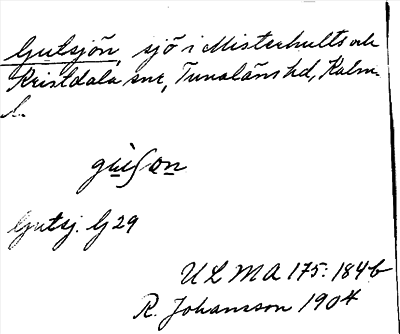 Gutsjön, sjö i Misterhults och
Kristdala snr, Tunaläns hd, Kalm.
l.
Gutsj. Gj 29
ULMA 175:184b
R. Johansson 1904